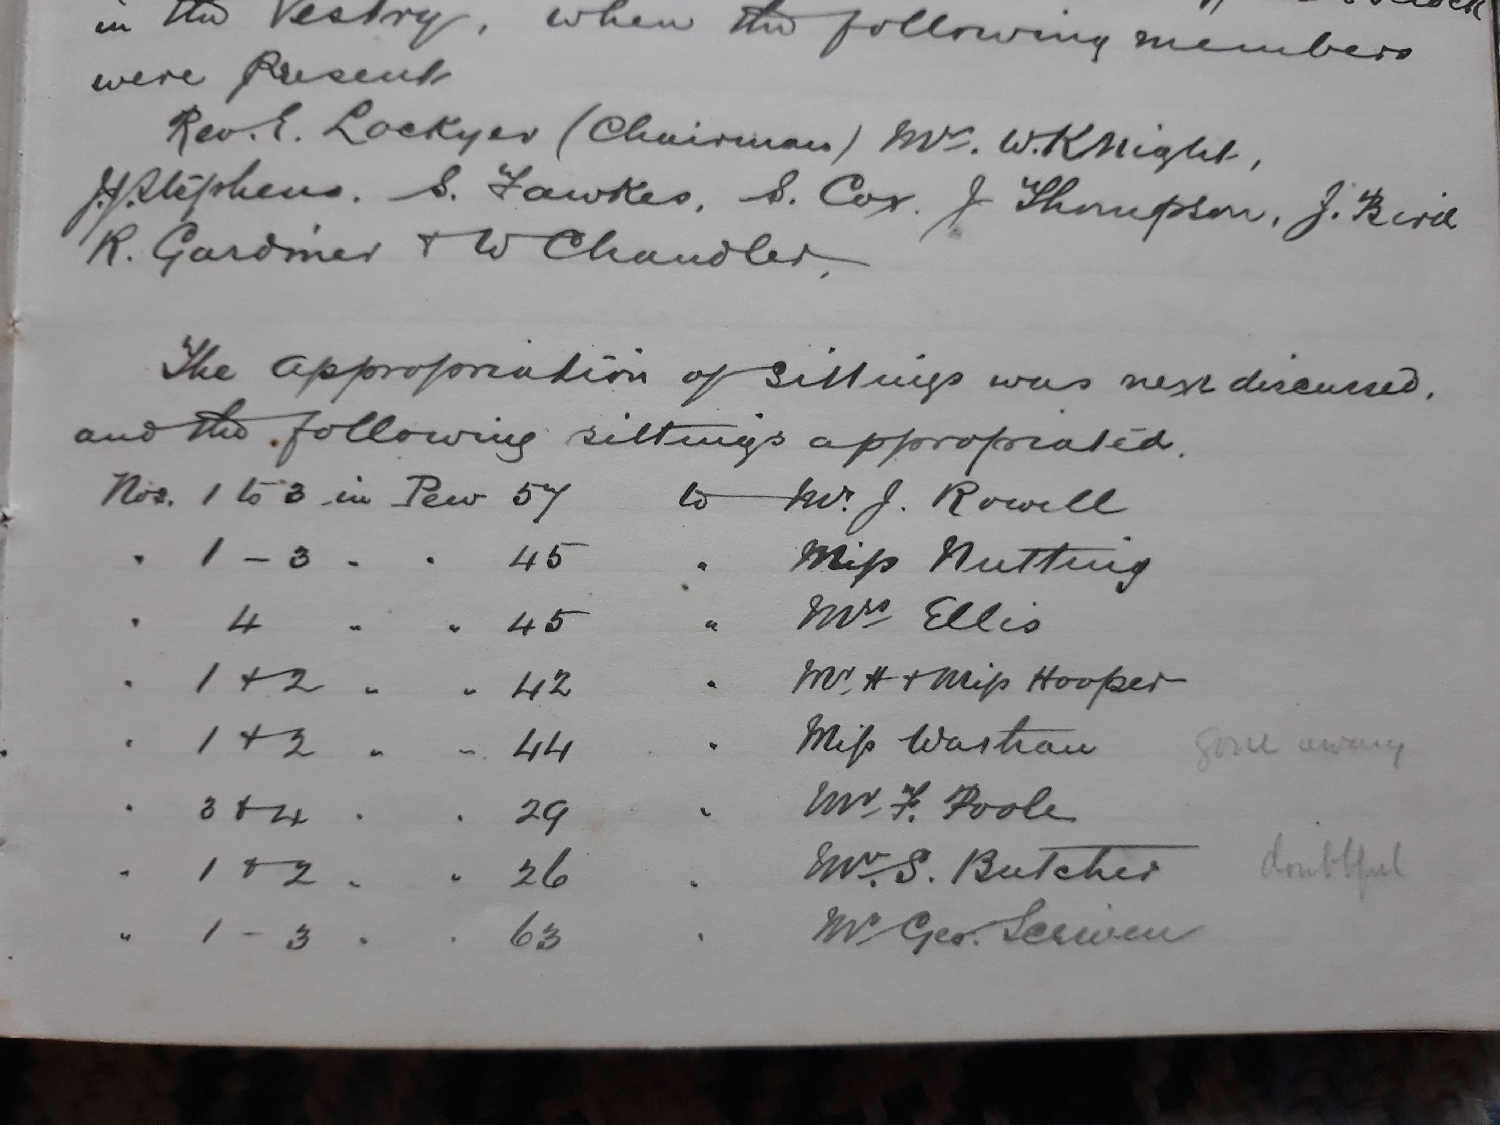 in the Vestry, when the following members
were Present
Rev. E. Lockyer (Chairman) Mr. W. Knight,
J.J. Stephens. S. Fawkes, S. Cox. J Thompson, J. Bird
R. Gardiner & W Chandler,
The appropriation of sittings was next discussed,
and the following sittings appropriated.
Nos. 1 to 3 in Pew 57 to Mr. J. Rowell
" 1 - 3 " " 45 " Miss Nutting
" 4 " " 45 " Mrs Ellis
" 1 + 2 " " 42 " Mr. H + Miss Hooper
" 1 + 2 " " 44 " Miss gone away
" 3 & 4 " " 29 " Mr. F. Poole
" 1 & 2 " " 26 " Mr. S. Butcher doubtful
" 1 - 3 " " 63 " Mr Geo. Scriven